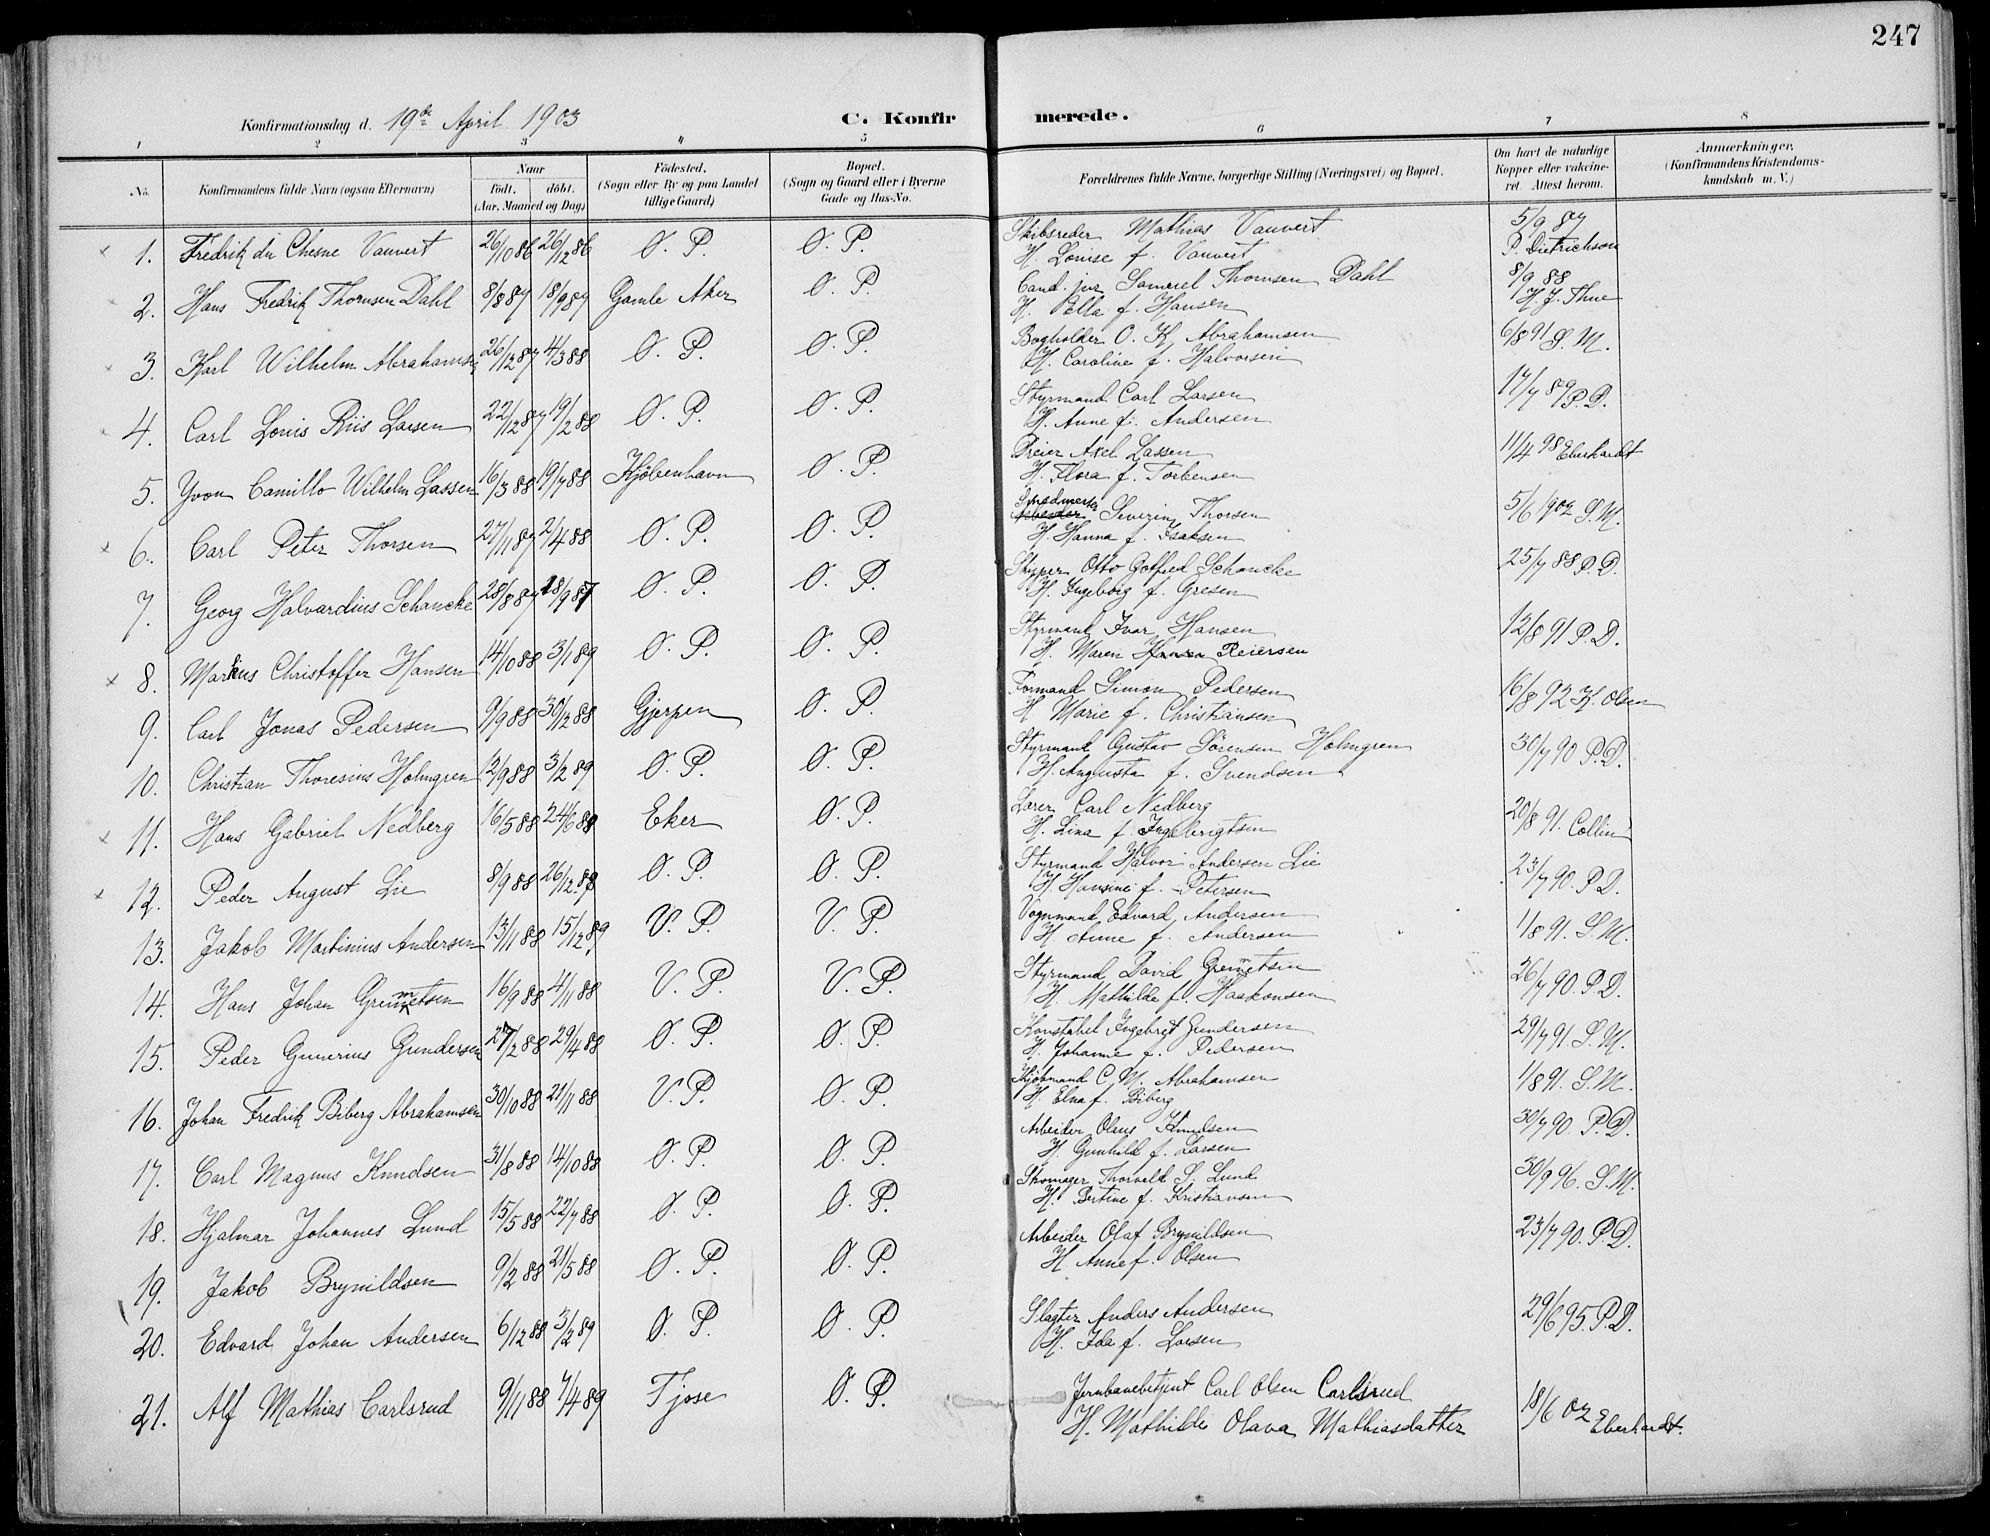 247
Konfirmationsdag d. 19de April 1903 C. Konfirmerede.
1 2 3 4 5 6 7 8
No. Konfirmandens fulde Navn (ogsaa Efternavn) Naar födt, döbt. (Aar, Maaned og Dag) Födested. (Sogn eller By og paa Landet tillige Gaard) Bopæl. (Sogn og Gaard eller i Byerne Gade og Hus-No. Forældrenes fulde Navne, borgerlige Stilling (Næringsvei) og Bopæl. Om havt de naturlige Kopper eller vakcineret. Attest herom. Anmærkninger. (Konfirmandens Kristendomskundskab m. V.)
1. Fredrik du Chesne Vauvert 26/10 86 26/12 86 Ø. P. Ø. P. Skibsreder Mathias Vauvert 5/9 87
H. Louise f. Vauvert P. Dietrichson
2. Hans Fredrik Thornsen Dahl 8/8 87 18/9 87 Gamle Aker Ø. P. Cand. jur Samuel Thomsen Dahl 8/9 88
H. Ella f. Hansen H. J. Thue
3. Karl Wilhelm Abrahamsen 26/12 87 4/3 88 Ø. P. Ø. P. Bogholder O. K. Abrahamsen 6/8 91 S. M.
H. Caroline f. Halvorsen
4. Carl Louis Riis Larsen 22/12 87 19/2 88 Ø. P. Ø. P. Styrmand Carl Larsen 17/7 89 P. D.
H. Anne f. Andersen
5. Yvon Camillo Wilhelm Lassen 16/3 88 19/7 88 Kjöbenhavn Ø. P. Dreier Axel Lassen 11/4 98 Eberhardt
H. Flora f. Torbensen
6. Carl Peter Thorsen 27/11 87 2/4 88 Ø. P. Ø. P. Smedmester Severin Thorsen 5/6 1902 S. M.
H. Hanna f. Isaksen
7. Georg Halvardius Schancke 28/8 87 18/9 87 Ø. P. Ø. P. Skipper Otto Gotfred Schancke 25/7 88 P. D.
H. Ingeborg f. Gresen
8. Markus Christoffer Hansen 14/10 88 3/1 89 Ø. P. Ø. P. Styrmand Ivar Hansen 12/8 91 P. D.
H. Maren Hansen Reiersen
9. Carl Jonas Pedersen 9/9 88 30/12 88 Gjerpen Ø. P. Formand Simon Pedersen 16/8 92 K. Olsen
H. Marie f. Christiansen
10. Christian Thoresius Holmgren 12/9 88 3/2 89 Ø. P. Ø. P. Styrmand Gustav Sørensen Holmgren 30/7 90 P. D.
H. Augusta f. Svendsen
11. Hans Gabriel Nedberg 16/5 88 24/6 88 Eker Ø. P. Lærer Carl Nedberg 20/8 91. Collin
H. Lina f. Ingebrigtsen
12. Peder August Lie 8/9 88 26/12 88 Ø. P. Ø. P. Styrmand Halvor Andersen Lie 23/7 90. P. D.
H. Hansine f. Petersen
13. Jakob Martinius Andersen 13/11 88 15/12 89 V. P. V. P. Vognmand Edvard Andersen 1/8 91. S. M.
H. Anne f. Andersen
14. Hans Johan Gremmetsen 16/9 88 4/11 88 V. P. V. P. Styrmand David Gremmetsen 26/7 90. P. D.
H. Mathilde f. Haakonsen
15. Peder Gunerius Gundersen 27/2 88 29/4 88 Ø. P. Ø. P. Konstabel Ingebret Gundersen 29/7 91. S. M.
H. Johanne f. Pedersen
16. Johan Fredrik Biberg Abrahamsen 30/10 88 21/11 88 V. P. Ø. P. Kjøbmand C. M. Abrahamsen 1/8 91. S. M.
H. Elna f. Biberg
17. Carl Magnus Knudsen 31/8 88 14/10 88 Ø. P. Ø. P. Arbeider Olaus Knudsen 30/7 90. P. D.
H. Gunhild f. Larsen
18. Hjalmar Johannes Lund 15/5 88 22/7 88 Ø. P. Ø. P. Skomager Thorvald S. Lund 30/9 96. S. M.
H. Bertine f. Kristiansen
19. Jakob Brynildsen 9/2 88 21/5 88 Ø. P. Ø. P. Arbeider Olaf Brynildsen 23/7 90. P. D.
H. Anne f. Olsen
20. Edvard Johan Andersen 6/12 88 3/2 89 Ø. P. Ø. P. Slagter Anders Andersen 29/6 95. P. D.
H. Ida f. Larsen
21. Alf Mathias Carlsrud 9/11 88 7/4 89 Tjose Ø. P. Jernbanebetjent Carl Olsen Carlsrud 18/6 02 Eberhardt.
H. Mathilde Olava Mathiasdatter